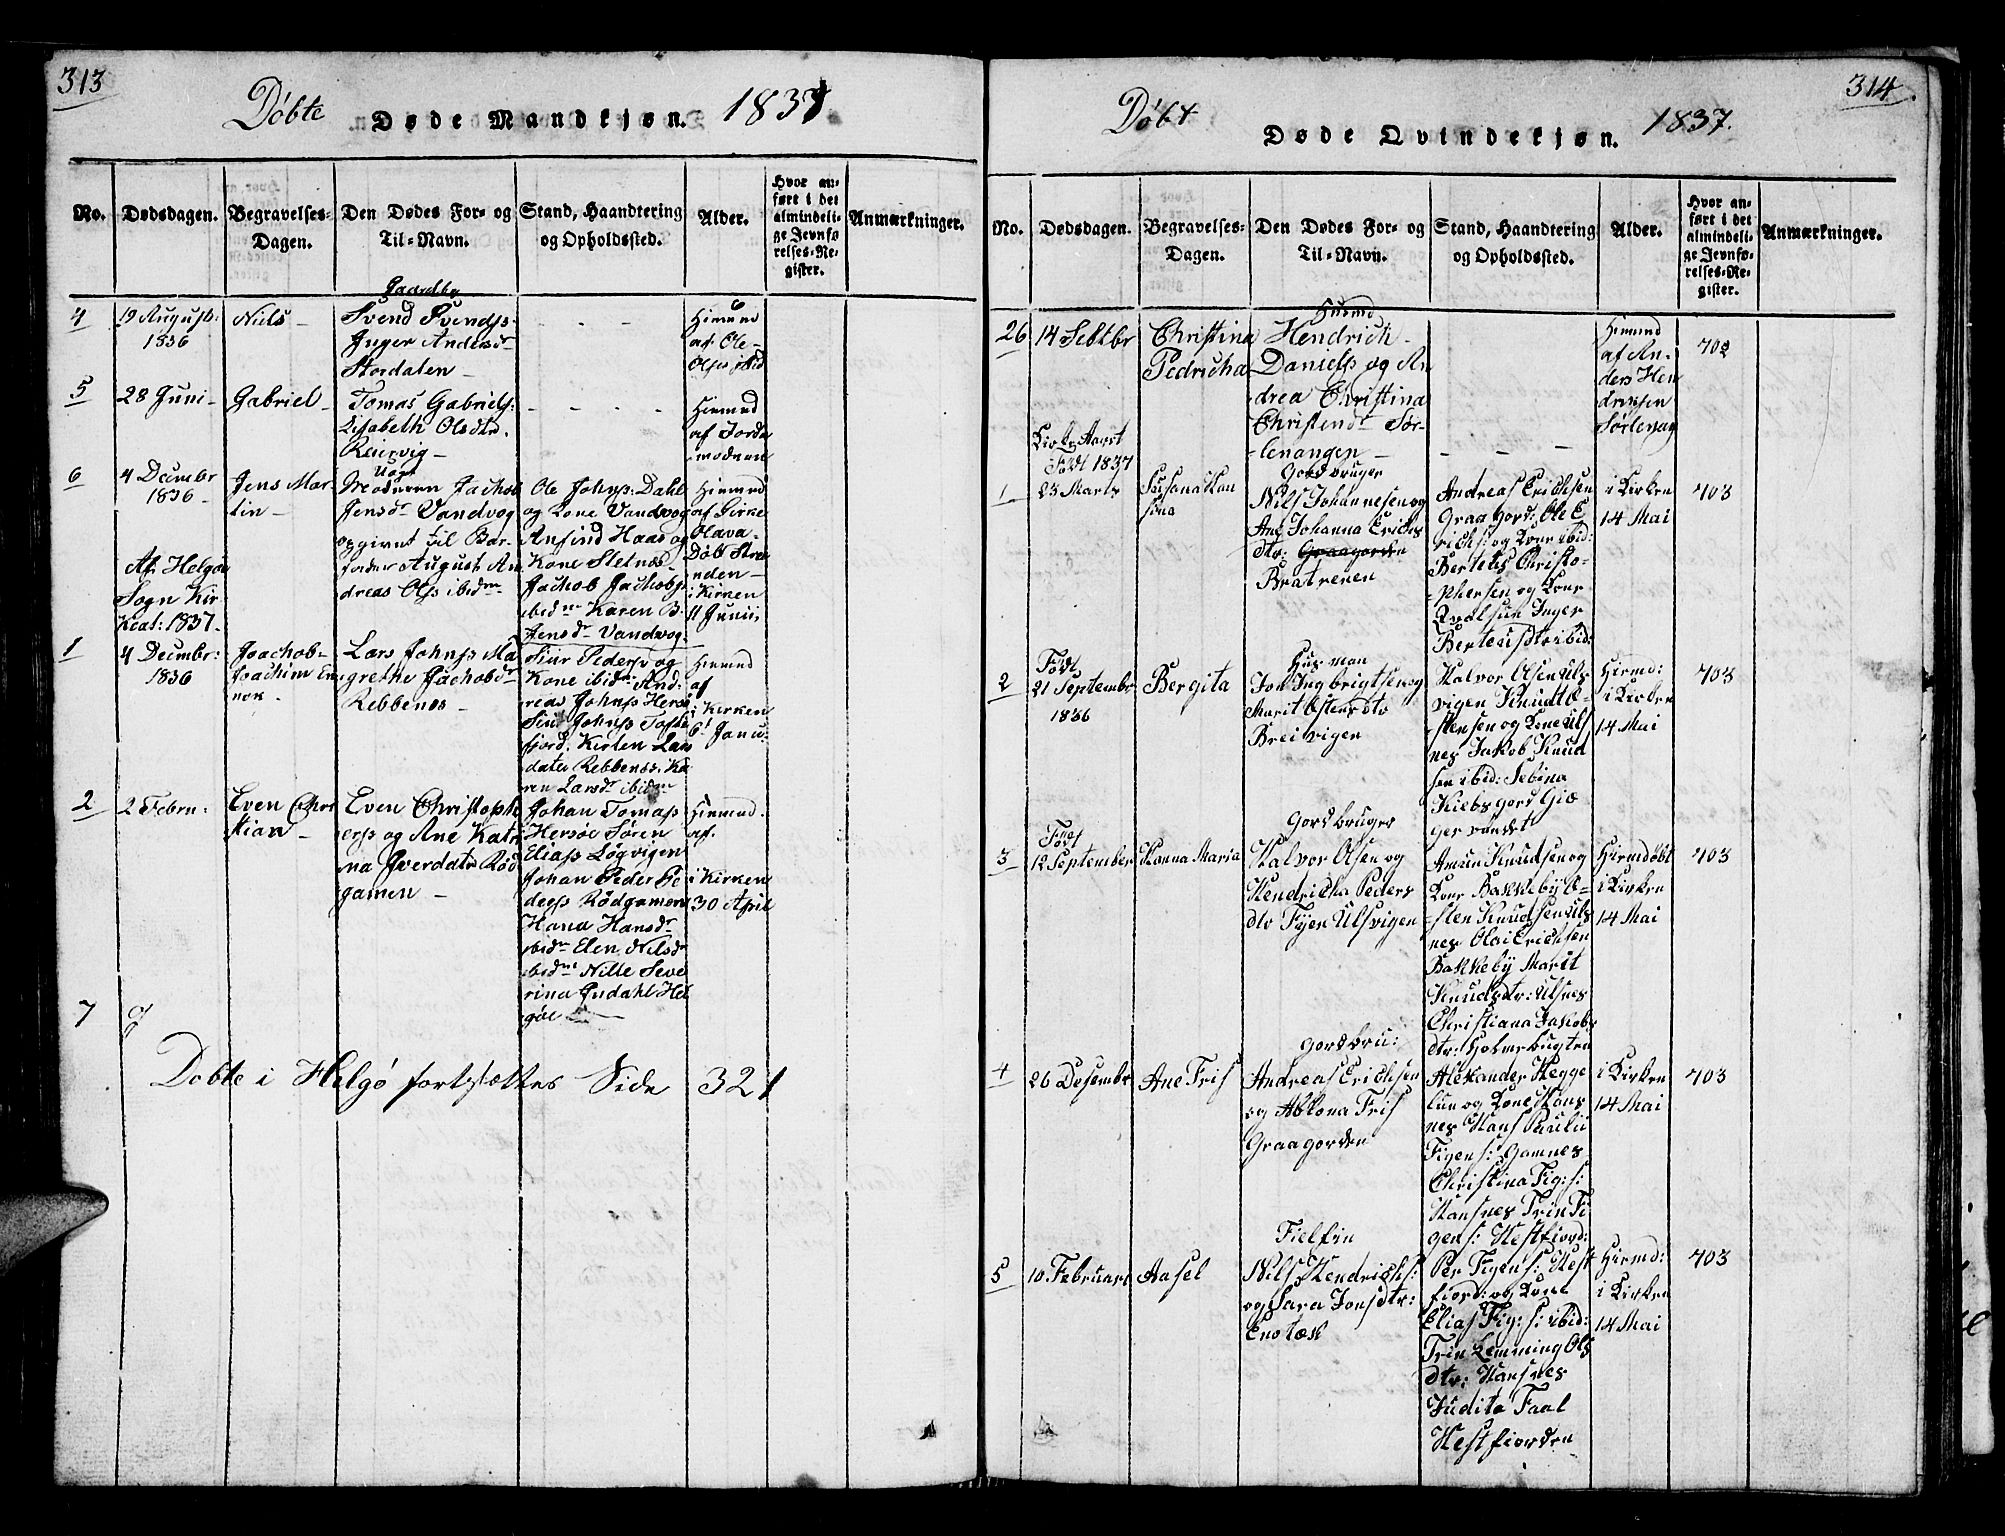 313
Döbte Døde Mandkjøn. 1837
No.
Dødsdagen.
Begravelses-
Dagen.
Den Dødes For- og
Til-Navn.
Stand, Haandtering
og Opholdssted.
Alder.
Hvor an-
ført i det
almindeli-
ge Jevnfø
relses-Re-
gister.
Anmærkninger.
4
19 August:
1836
Niels
Gaardbr
Svend Svends:
Inger Andersdr
Stordalen
Hiemmed
af Ole
Olsen ibid
5
28 Juni
Gabriel
Tomas Gabriels:
Lisabeth Olsdtr.
Reinvig
Hiemmed
af Jorde
moderen
6
4 Decembr
1836
Jens Mar-
tin
Ugift
Moderen Jachob
Jensdr Vandvog
opgivet til Bar-
fader August An
dreas Ols ibidm
Ole Johns: Dahl
og Kone Vandvog
Arnfind Haas og
Kone Sletnes
Jachob Jachobs
ibidm Karen B.
Jensdr Vandvog
Hiemmed
af Kirke
Olava
Døb Stra
nden
i Kirken
11 Junii
Af Helgø
Sogn Kir-
keat: 1837.
1
4 Decembr:
1836
Joachob-
Joachim En
nok
Lars Johns Ma
grethe Jachobdr
Rebbenes
Siur Peders og
Kone ibidm And:
reas Johns Hersø
Siur Johns Tofte
fjord. Kirsten Lars
dater Rebbenes. Ka
ren Larsdr ibidm
Hiemmed
af
i Kirken
6 Janu:
2
2 Febru:
Even Chri
stian
Even Christoph
ers og Ane Katri
na Iverdatr Rød
gamen
Johan Tomas
Hersøe Søren
Elias Løgvigen
Johan Peder Pe
ders Rødgamen
Hana Hansdr
ibidm Elen Nilsdr
ibidm Nille Seve
rina Indahl Hel
gøe
Hiemmed
af.
i Kirken
30 April
7
Dobte i Helgø fortsættes Side 321
314
Döbt Døde Qvindekjøn. 1837.
No.
Dødsdagen.
Begravelses-
Dagen.
Den Dødes For- og
Til-Navn.
Stand, Haandtering
og Opholdssted.
Alder.
Hvor an-
ført i det
almindeli-
ge Jevnfø-
relses-Re-
gister.
Anmærkninger.
26
14 Sebtbr
Christina
Pedricha
Husmd
Hendrich
Daniels og An
drea Christina
Christendr Sør-
lenangen
Hiemd
af An-
ders Hen
dricksen
Sørlevag
702
Kirke Aaret
Födt 1837
1
23 Marts
Susana Kan
sina
Gordbruger
Nils Johannesen og
Ane Johanna Erichs
dtr: Graagorden
Bratrenen
Andreas Erichsen
Graagord: Ole E
richs: og Kone ibid:
Berteus Christo-
phersen og Kone
Kvalsun Inger
Berteusdtr ibid:
i Kirken
14 Mai
703
2
Födt
21 Septembr
1836
Bergita
Husman
Jon Ingbrigtsen og
Marit Ostensdtr
Breivigen
Halvor Olsen Uls
vigen Knudt O-
stensen og Kone Uls
nes Jakob Knud
sen ibid: Sebina
Kiebsgord Giæ
ger vandet
Hiemd:
i Kirken
14 Mai
703
3
Födt
12 September
Hanna Maria
Gordbruger
Halvor Olsen og
Hendricha Peders
dtr Fyen Ulsvigen
Amun Knudsen og
Kone Bakkeby O-
sten Knudsen Uls
nes Olai Erichsen
Bakkeby Marit
Knudsdtr: Ulsnes
Christiana Jakobs
dtr: Holmebugten
Hiemdöbt
i Kirken
14 Mai
703
4
26 Desembr
Ane Fris
Gordbru:
Andreas Erichsen
og Abbona Fris
Graagorden
Alexander Hegge
lun og Kone Hans
nes Hans Paulii
Figens: Gamnes
Christina Fig: s:
Hansnes Trin Fi
gens: Hestfiord:
i Kirken
14 Mai
703
5
10 Februari
Aasel
Fielfin
Nils Hendrichs:
og Sara Jonsdtr:
Per Figens: Hest
fiord: og Kone
Elias Fig: s: ibid:
Trin Lemming Ols
dtr: Hansnes
Judita Faal
Hestfiorden
Hiemd:
i Kirken
14 Mai
703